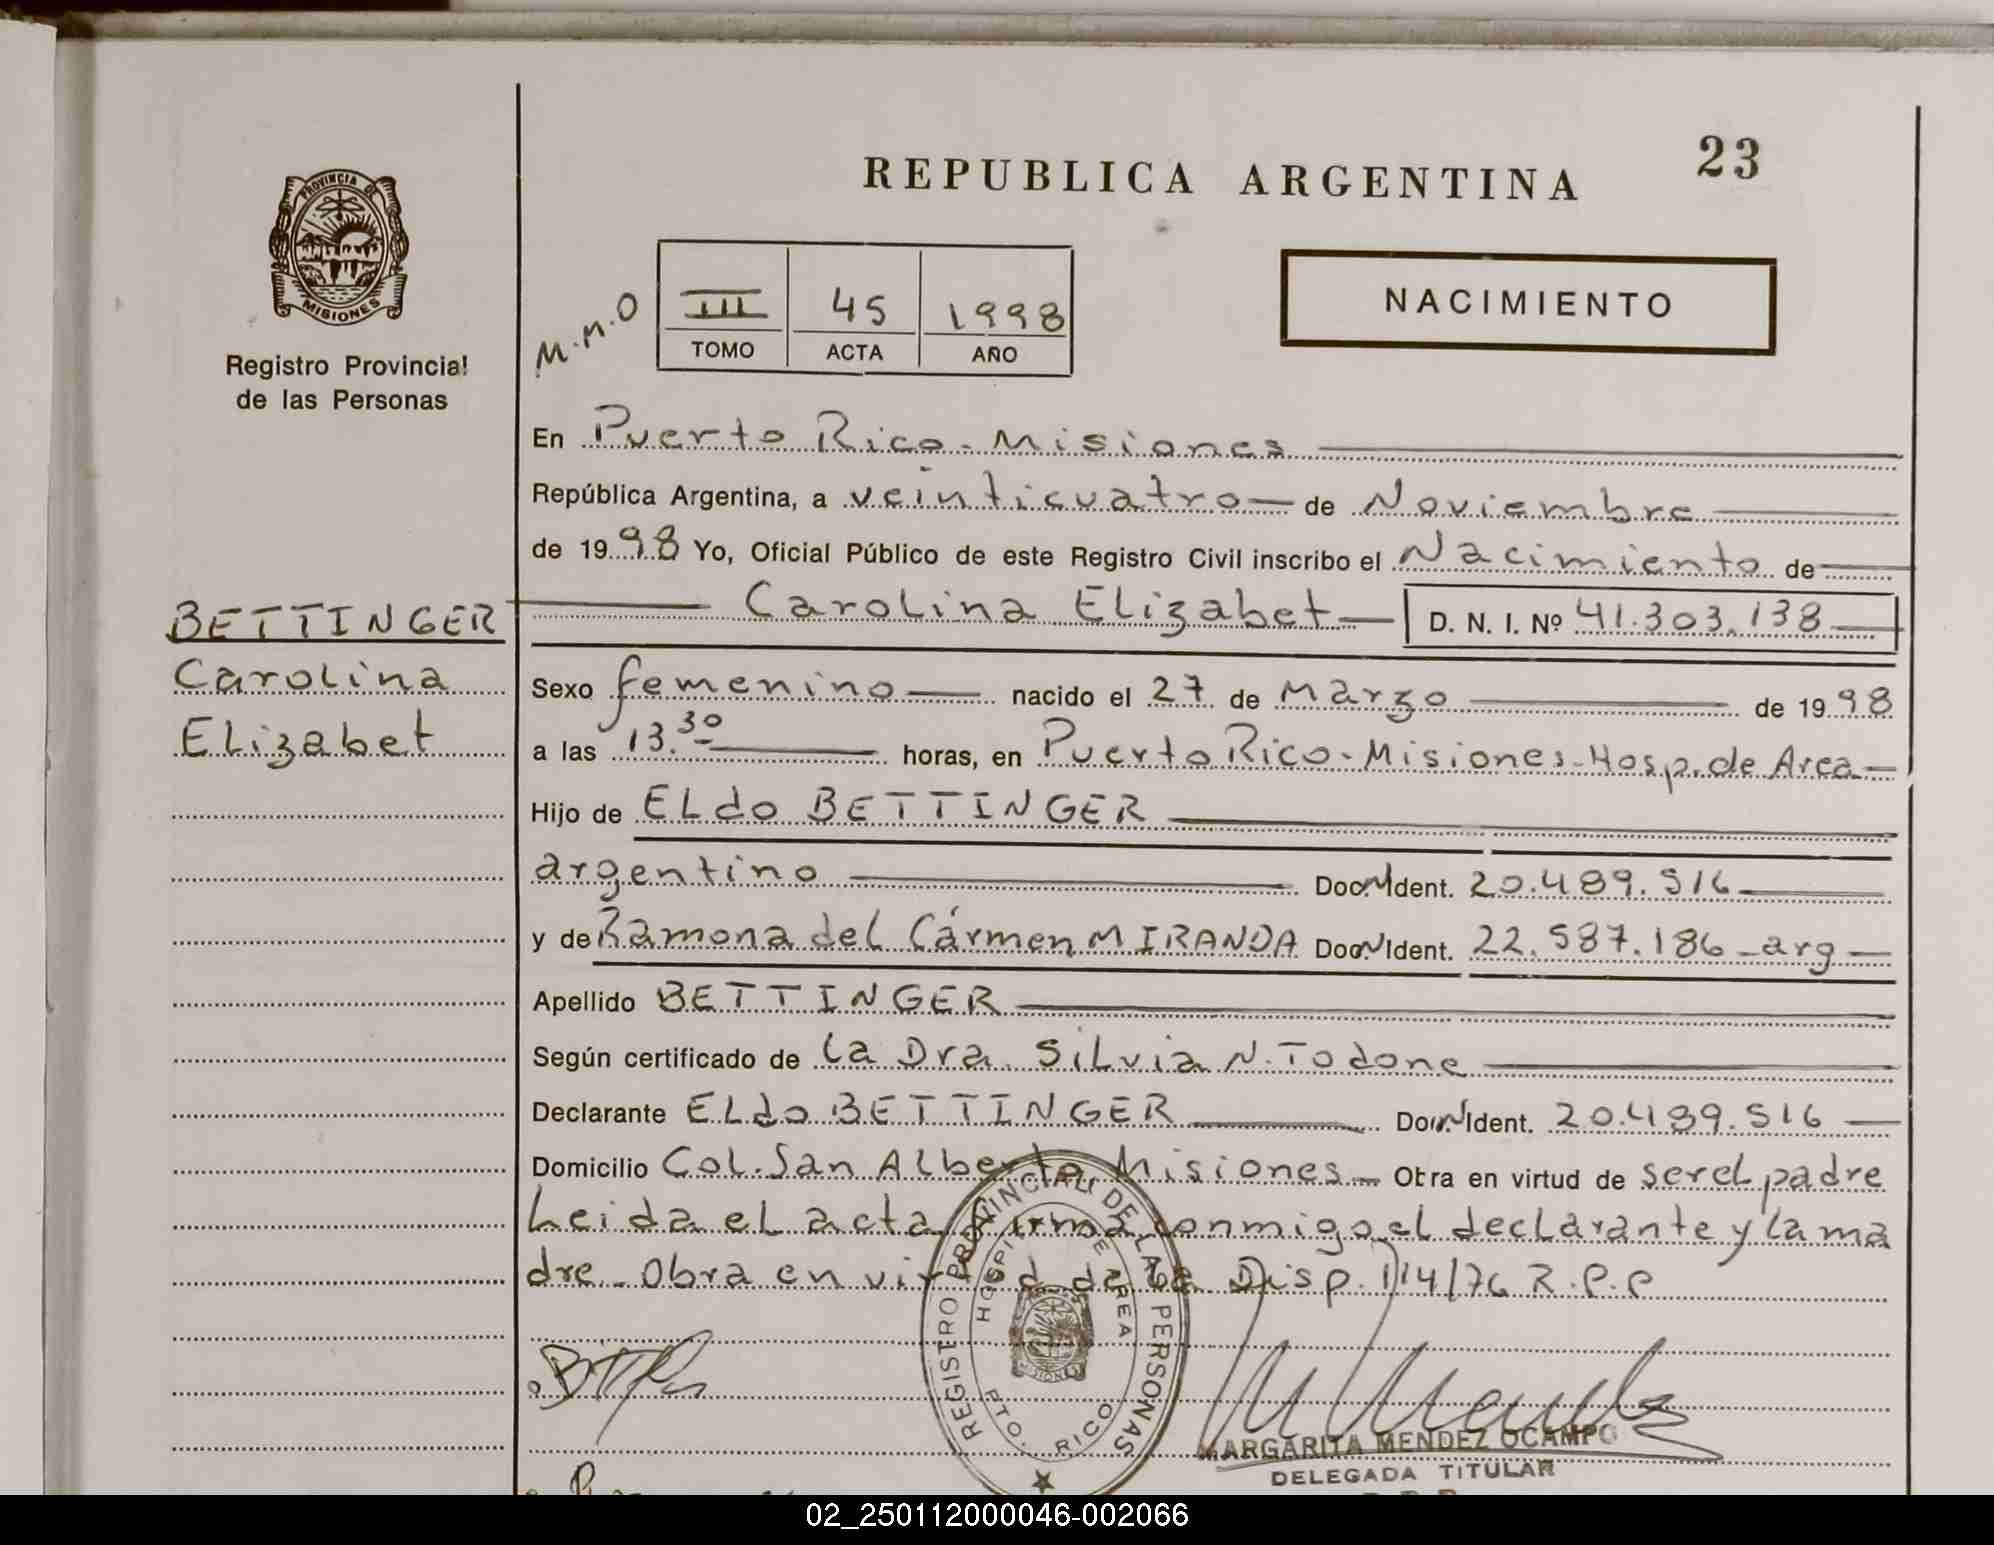 REPUBLICA ARGENTINA
23
PROVINCIA DE
MISIONES
Registro Provincial
de las Personas
M.M.O
III 45 1998
TOMO ACTA AÑO
NACIMIENTO
En Puerto Rico - Misiones
República Argentina, a veinticuatro de Noviembre
de 1998 Yo, Oficial Público de este Registro Civil inscribo el Nacimiento de
Carolina Elizabet D. N. I. Nº 41.303.138
BETTINGER
Carolina
Elizabet
Sexo femenino nacido el 27 de Marzo de 1998
a las 13.30 horas, en Puerto Rico - Misiones - Hosp. de Area
Hijo de ELdo BETTINGER
argentino Doc. N Ident. 20.489.516
y de Ramona del Cármen MIRANDA Doc. N Ident. 22.587.186 - arg
Apellido BETTINGER
Según certificado de la Dra. Silvia N. Todone
Declarante ELdo BETTINGER Doc. N Ident. 20.489.516
Domicilio Col. San Alberto Misiones Otra en virtud de ser el padre
Leida el acta firma conmigo el declarante y la ma
dre - Obra en virtud de la Disp. 114/76 R.P.P
REGISTRO PROVINCIAL DE LAS PERSONAS
HOSPITAL DE AREA
PTO. RICO
MARGARITA MENDEZ OCAMPO
DELEGADA TITULAR
02_250112000046-002066